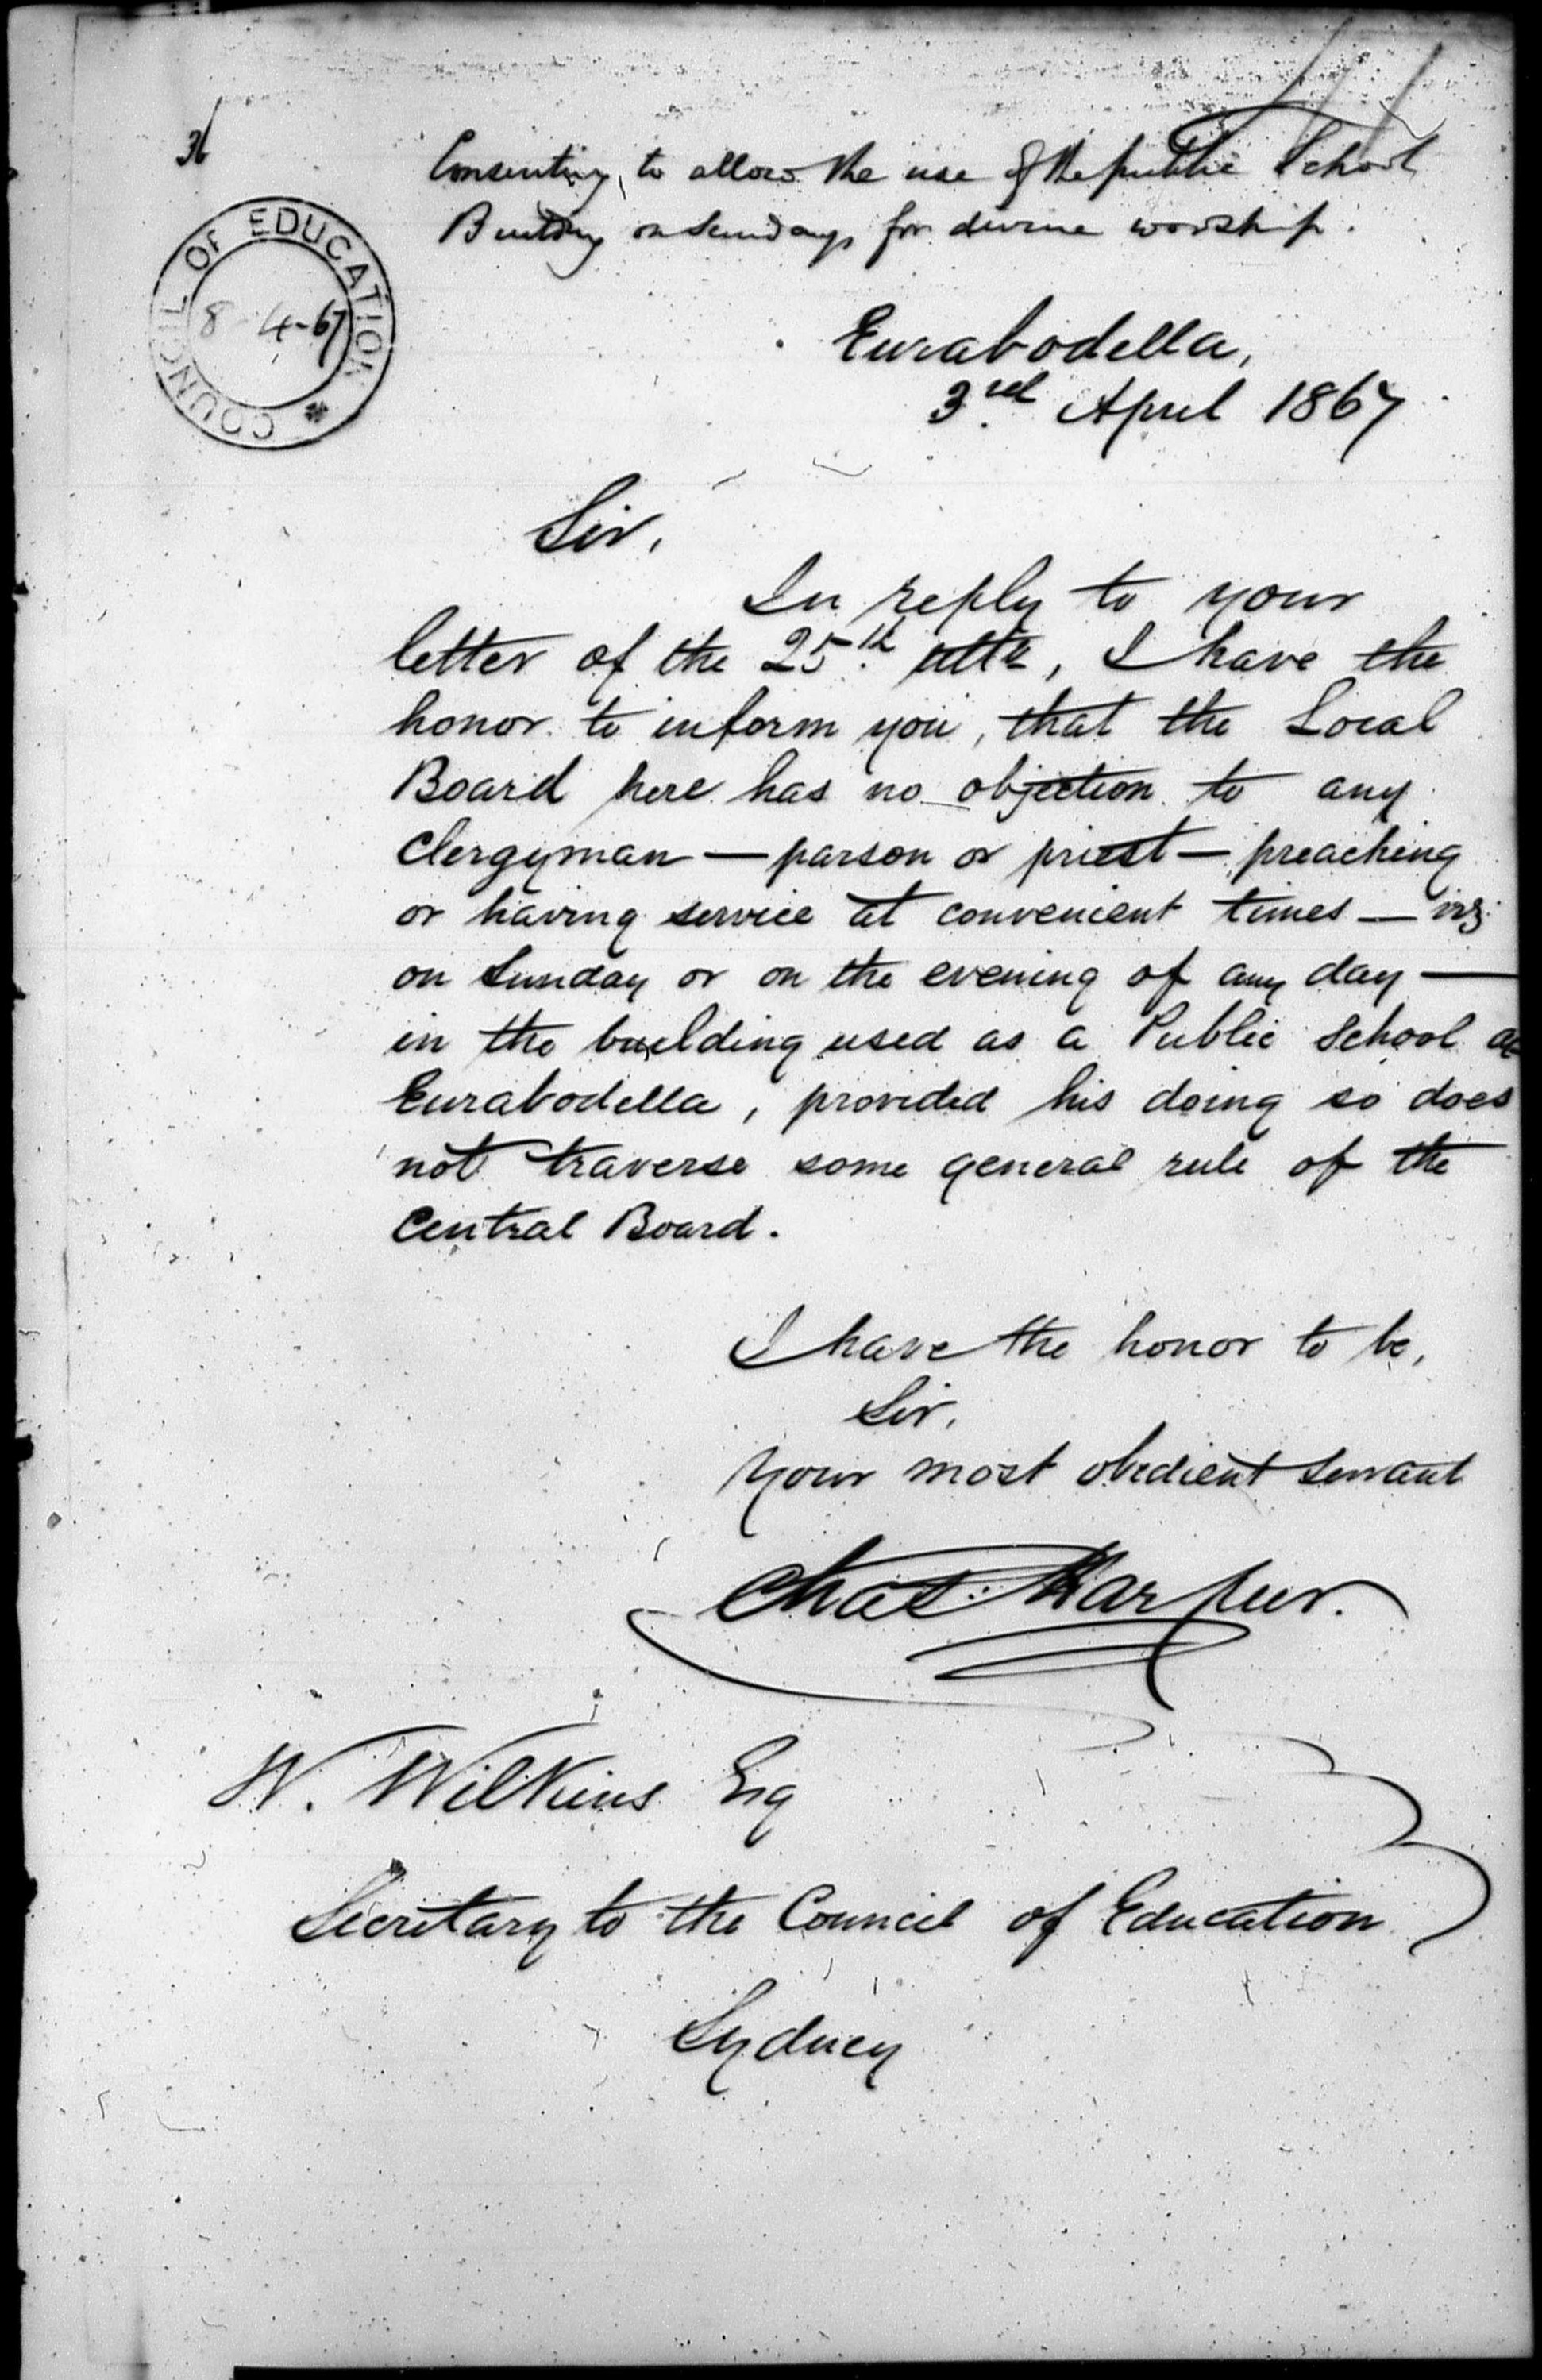 Consenting to allow the use of the public School
Building on Sundays for divine worship.
COUNCIL OF EDUCATION
8-4-67
Eurabodella,
3rd April 1867
Sir,
In reply to your
letter of the 25th ulto, I have the
honor to inform you, that the Local
Board here has no objection to any
Clergyman — parson or priest — preaching
or having service at convenient times — viz:
on Sunday or on the evening of any day —
in the building used as a Public School at
Eurabodella, provided his doing so does
not traverse some general rule of the
Central Board.
I have the honor to be,
Sir,
Your most obedient servant
Chas. Harpur.
W. Wilkins Esq
Secretary to the Council of Education
Sydney